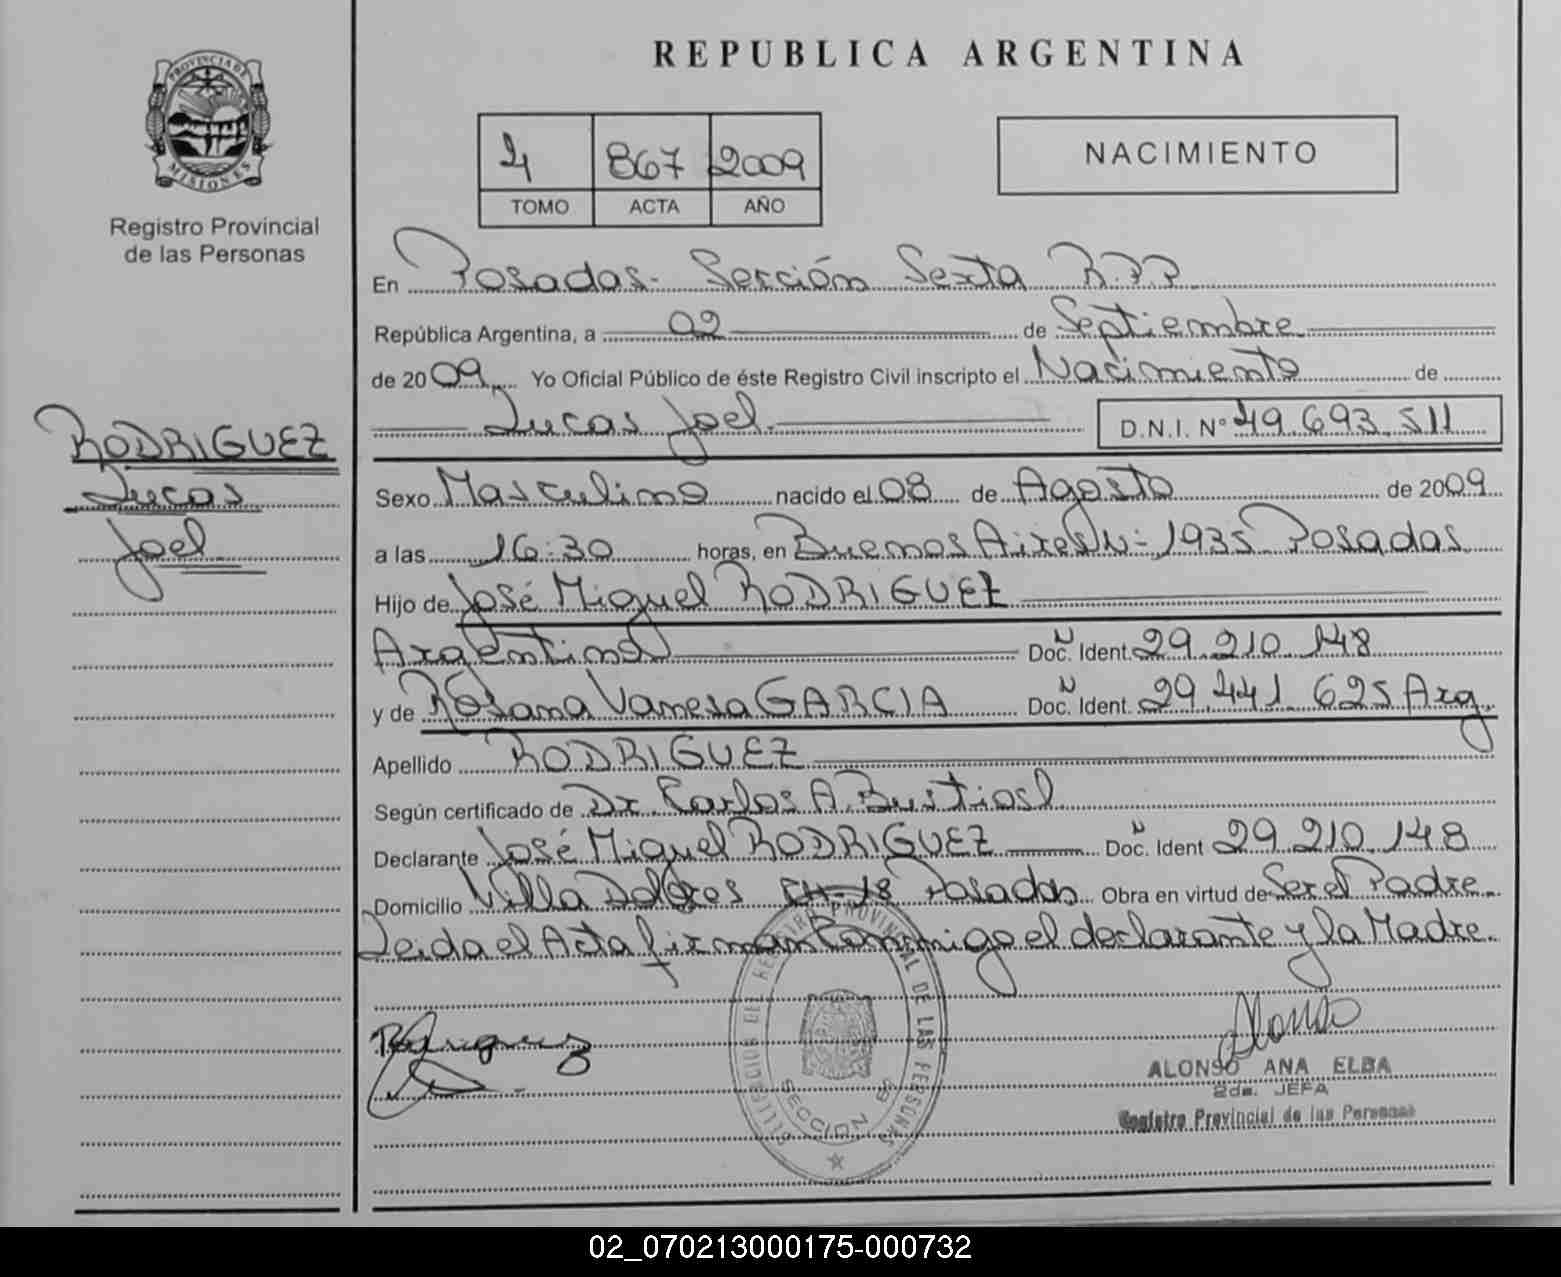 PROVINCIA DE
MISIONES
Registro Provincial
de las Personas
RODRIGUEZ
Lucas
Joel
REPUBLICA ARGENTINA
4 867 2009
TOMO ACTA AÑO
NACIMIENTO
En Posadas - Sección Sexta R.P.P.
República Argentina, a 02 de Septiembre
de 2009 Yo Oficial Público de éste Registro Civil inscripto el Nacimiento de
Lucas Joel. D.N.I. N° 49.693.511
Sexo Masculino nacido el 08 de Agosto de 2009
a las 16:30 horas, en Buenos Aires N- 1935 Posadas
Hijo de José Miguel RODRIGUEZ
Argentino Doc. N Ident. 29.210.148
y de Rosana Vanesa GARCIA Doc. N Ident. 29.441.625 Arg.
Apellido RODRIGUEZ
Según certificado de Dr. Carlos A. Bustios
Declarante José Miguel RODRIGUEZ Doc. N Ident 29.210.148
Domicilio Villa Dolores CH-18 Posadas Obra en virtud de Ser el Padre
Leida el Acta firman Conmigo el declarante y la Madre.
Rodriguez
Alonso
ALONSO ANA ELBA
2da. JEFA
Registro Provincial de las Personas
REGISTRO PROVINCIAL DE LAS PERSONAS
SECCION 6ª
02_070213000175-000732